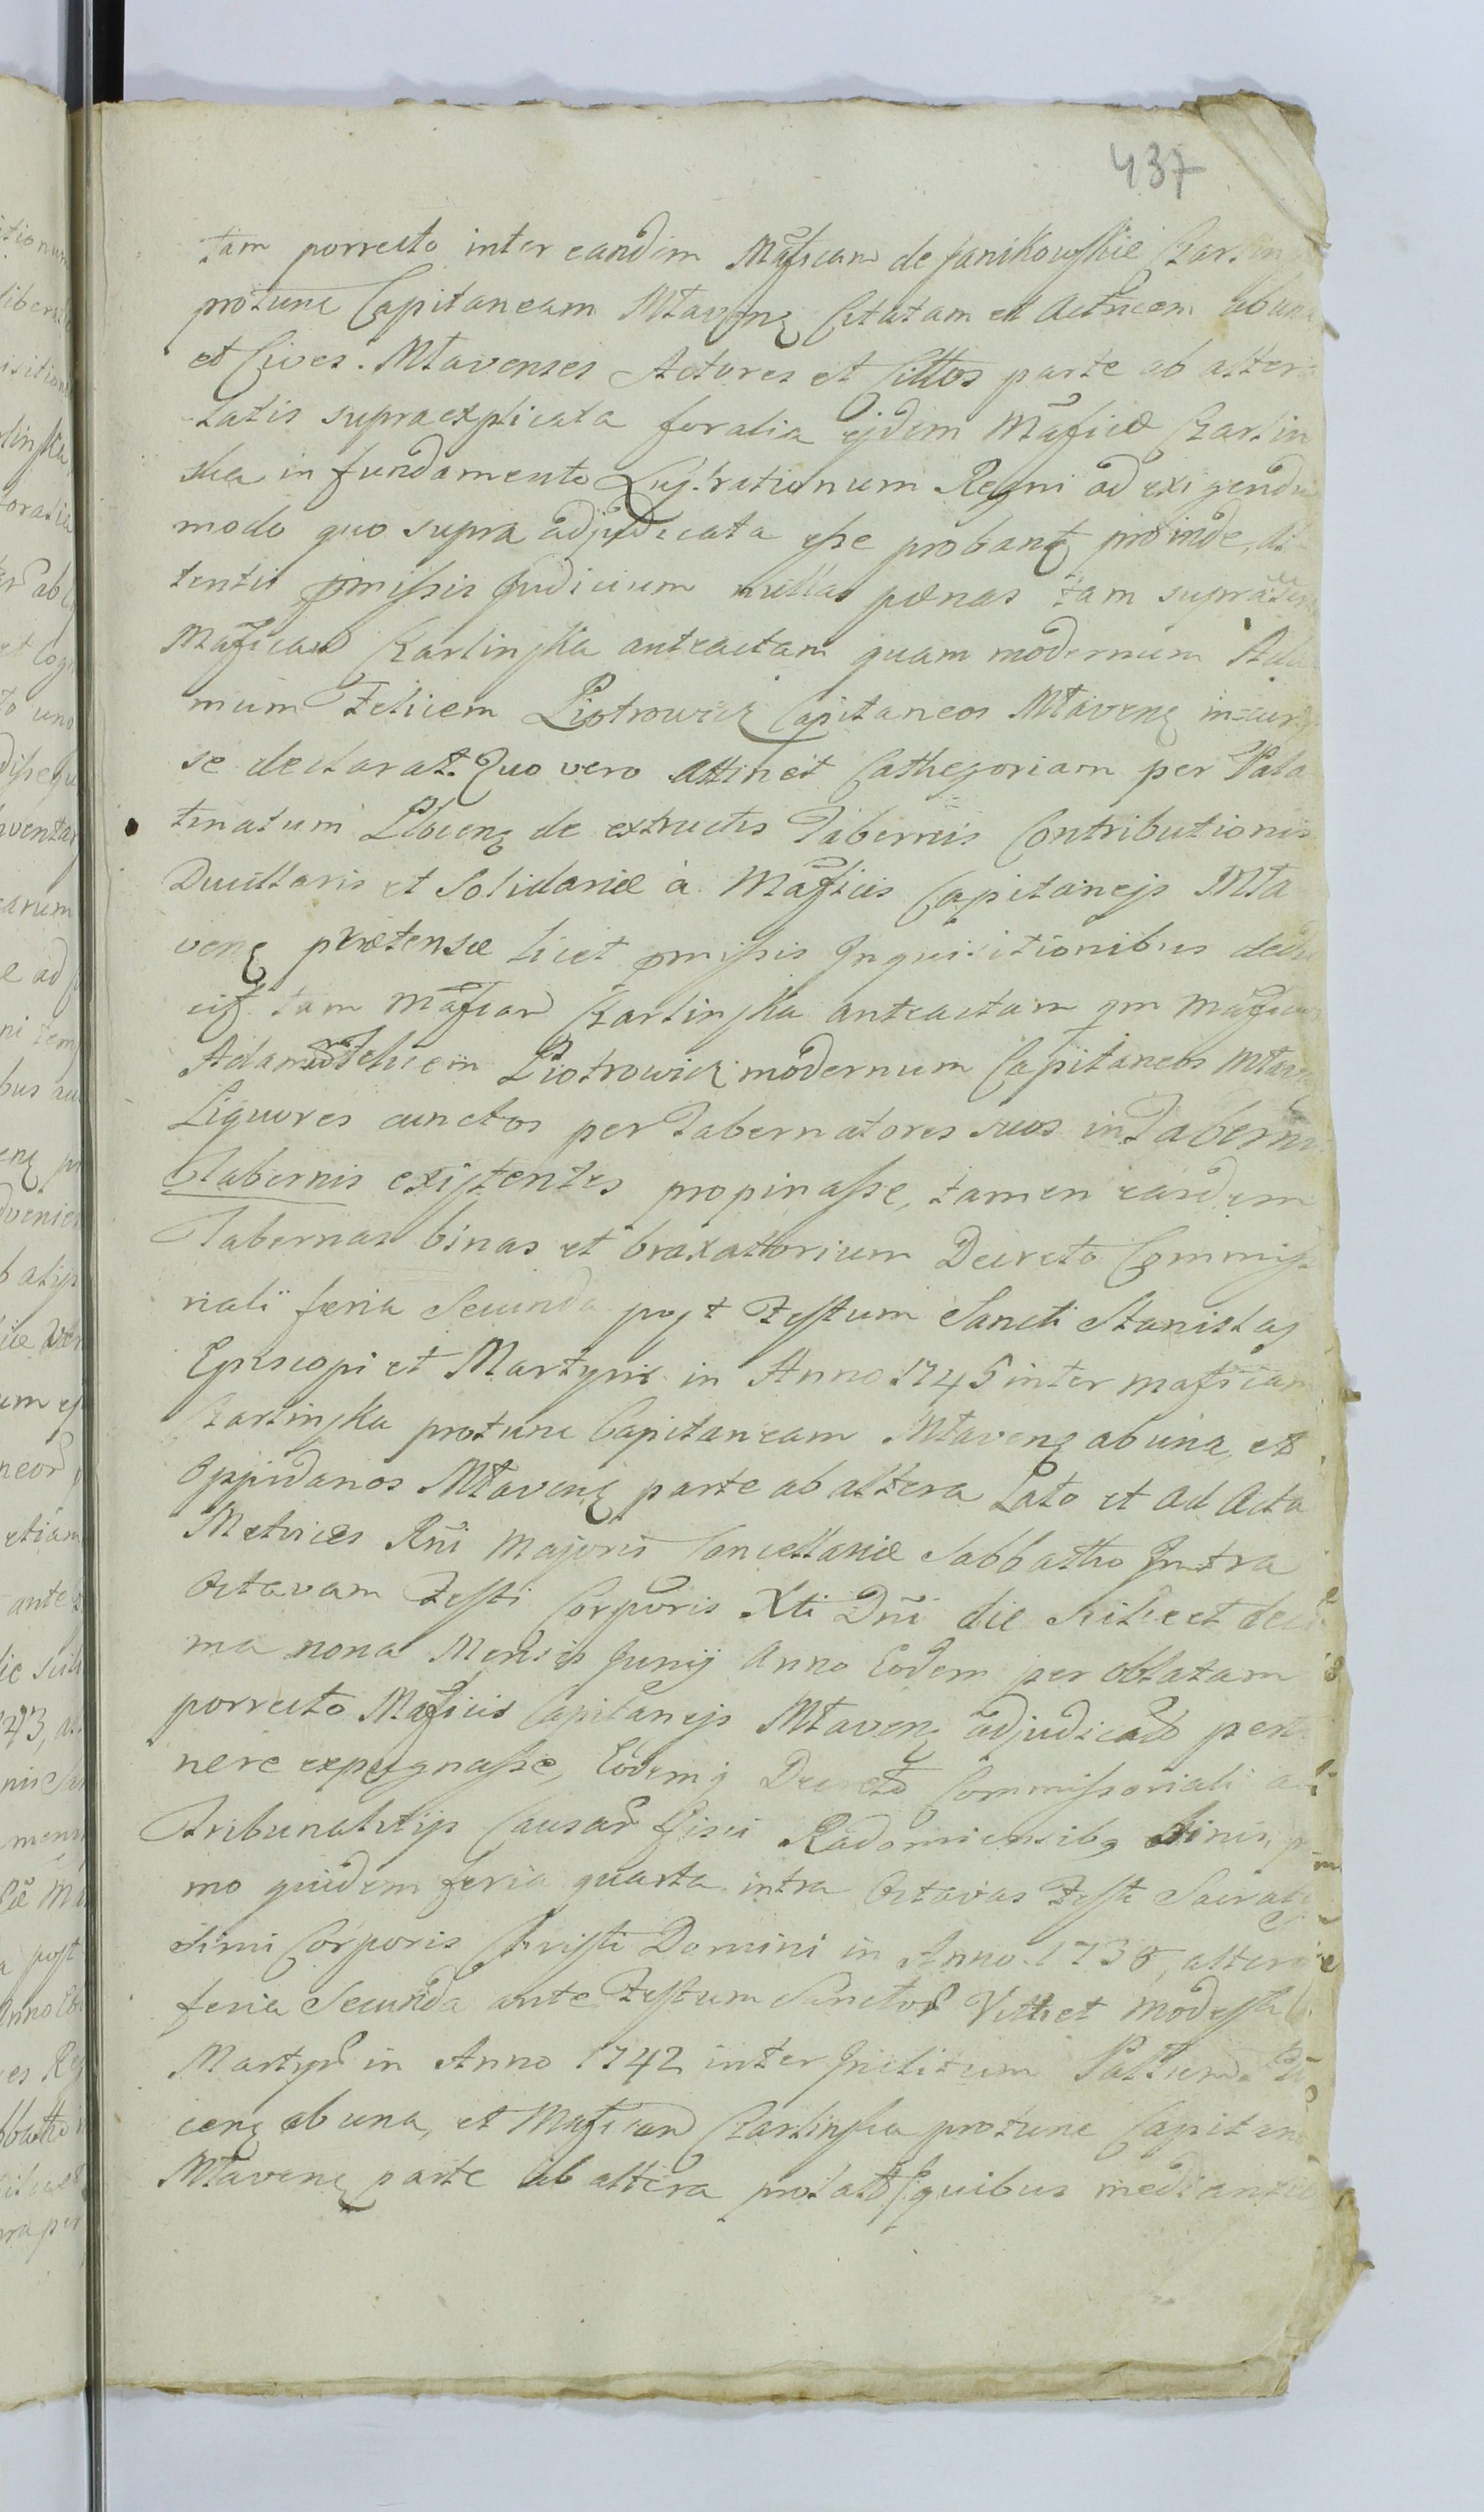 437
tam porrecto inter eandem Mãficam de Janikowskie Czarlin
protunc Capitaneam Młaveng Citatam et Actricem ab una
et Cives Mlavenses Actores et Cittos parte ab altera
latis supra explicata foralia ejdem Mãficæ Czarlin
ska in fundamento Lustrationum Regni ad exigendu
modo quo supra adjudicata esse probant proinde, at
tentis pmissis Judicium nullas pœnas tam supra
Mãficam Czarlinska anteactam quam modernum Ada
mum Felicem Piotrowicz Capitaneos Mlaveng incur
se declarat. Quo vero attinet Cathegoriam per Pala
tinatum Plocenz de extructis Tabernis Contributionis
Ducillaris et Solidariæ à Mãficis Capitaneis Mła
venz prætensæ licet pmissis Inquisitionibus dedu
cit tam Mãficam Czarlinska anteactam qm Mãficum
Adamum Felicem Piotrowicz modernum Capitaneos Mlavenz
Liquores cunctos per Tabernatores suos in Tabernis
Tabernis existentes propinasse, tamen easdem
Tabernas binas et braxatorium Decreto Commiss
riali feria Secunda post Festum Sancti Stanislaj
Episcopi et Martyris in Anno 1745 inter Mãficam
Czarlinska protunc Capitaneam Mlavenz ab una et
Oppidanos Mlavenz parte ab altera Lato et ad Acta
Metrices Rñi Majoris Cancellariæ Sabbatho Intra
Octavam Festi Corporis Xti Dñi die scilicet deci
ma nona Mensis Junij Anno Eodem per oblatam
porrecto Mãficis Capitaneis Mlavenz adjudicato perti
nere expugnasse, Eodemq Decreto Commissoriali ac
Tribunalitijs Causar Fisci Radomiensibq binis, p
mo quidem feria quarta intra Octavas Festi Sacratis
simi Corporis Christi Domini in Anno 1738, altero
feria Secunda ante Festum Sanctor Viti et Modesti
Martyr in Anno 1742 inter Palt
cenz ab una, et Mãficam Czarlinska protunc Capitan
Mlavenz parte ab altera prolat quibus mediante